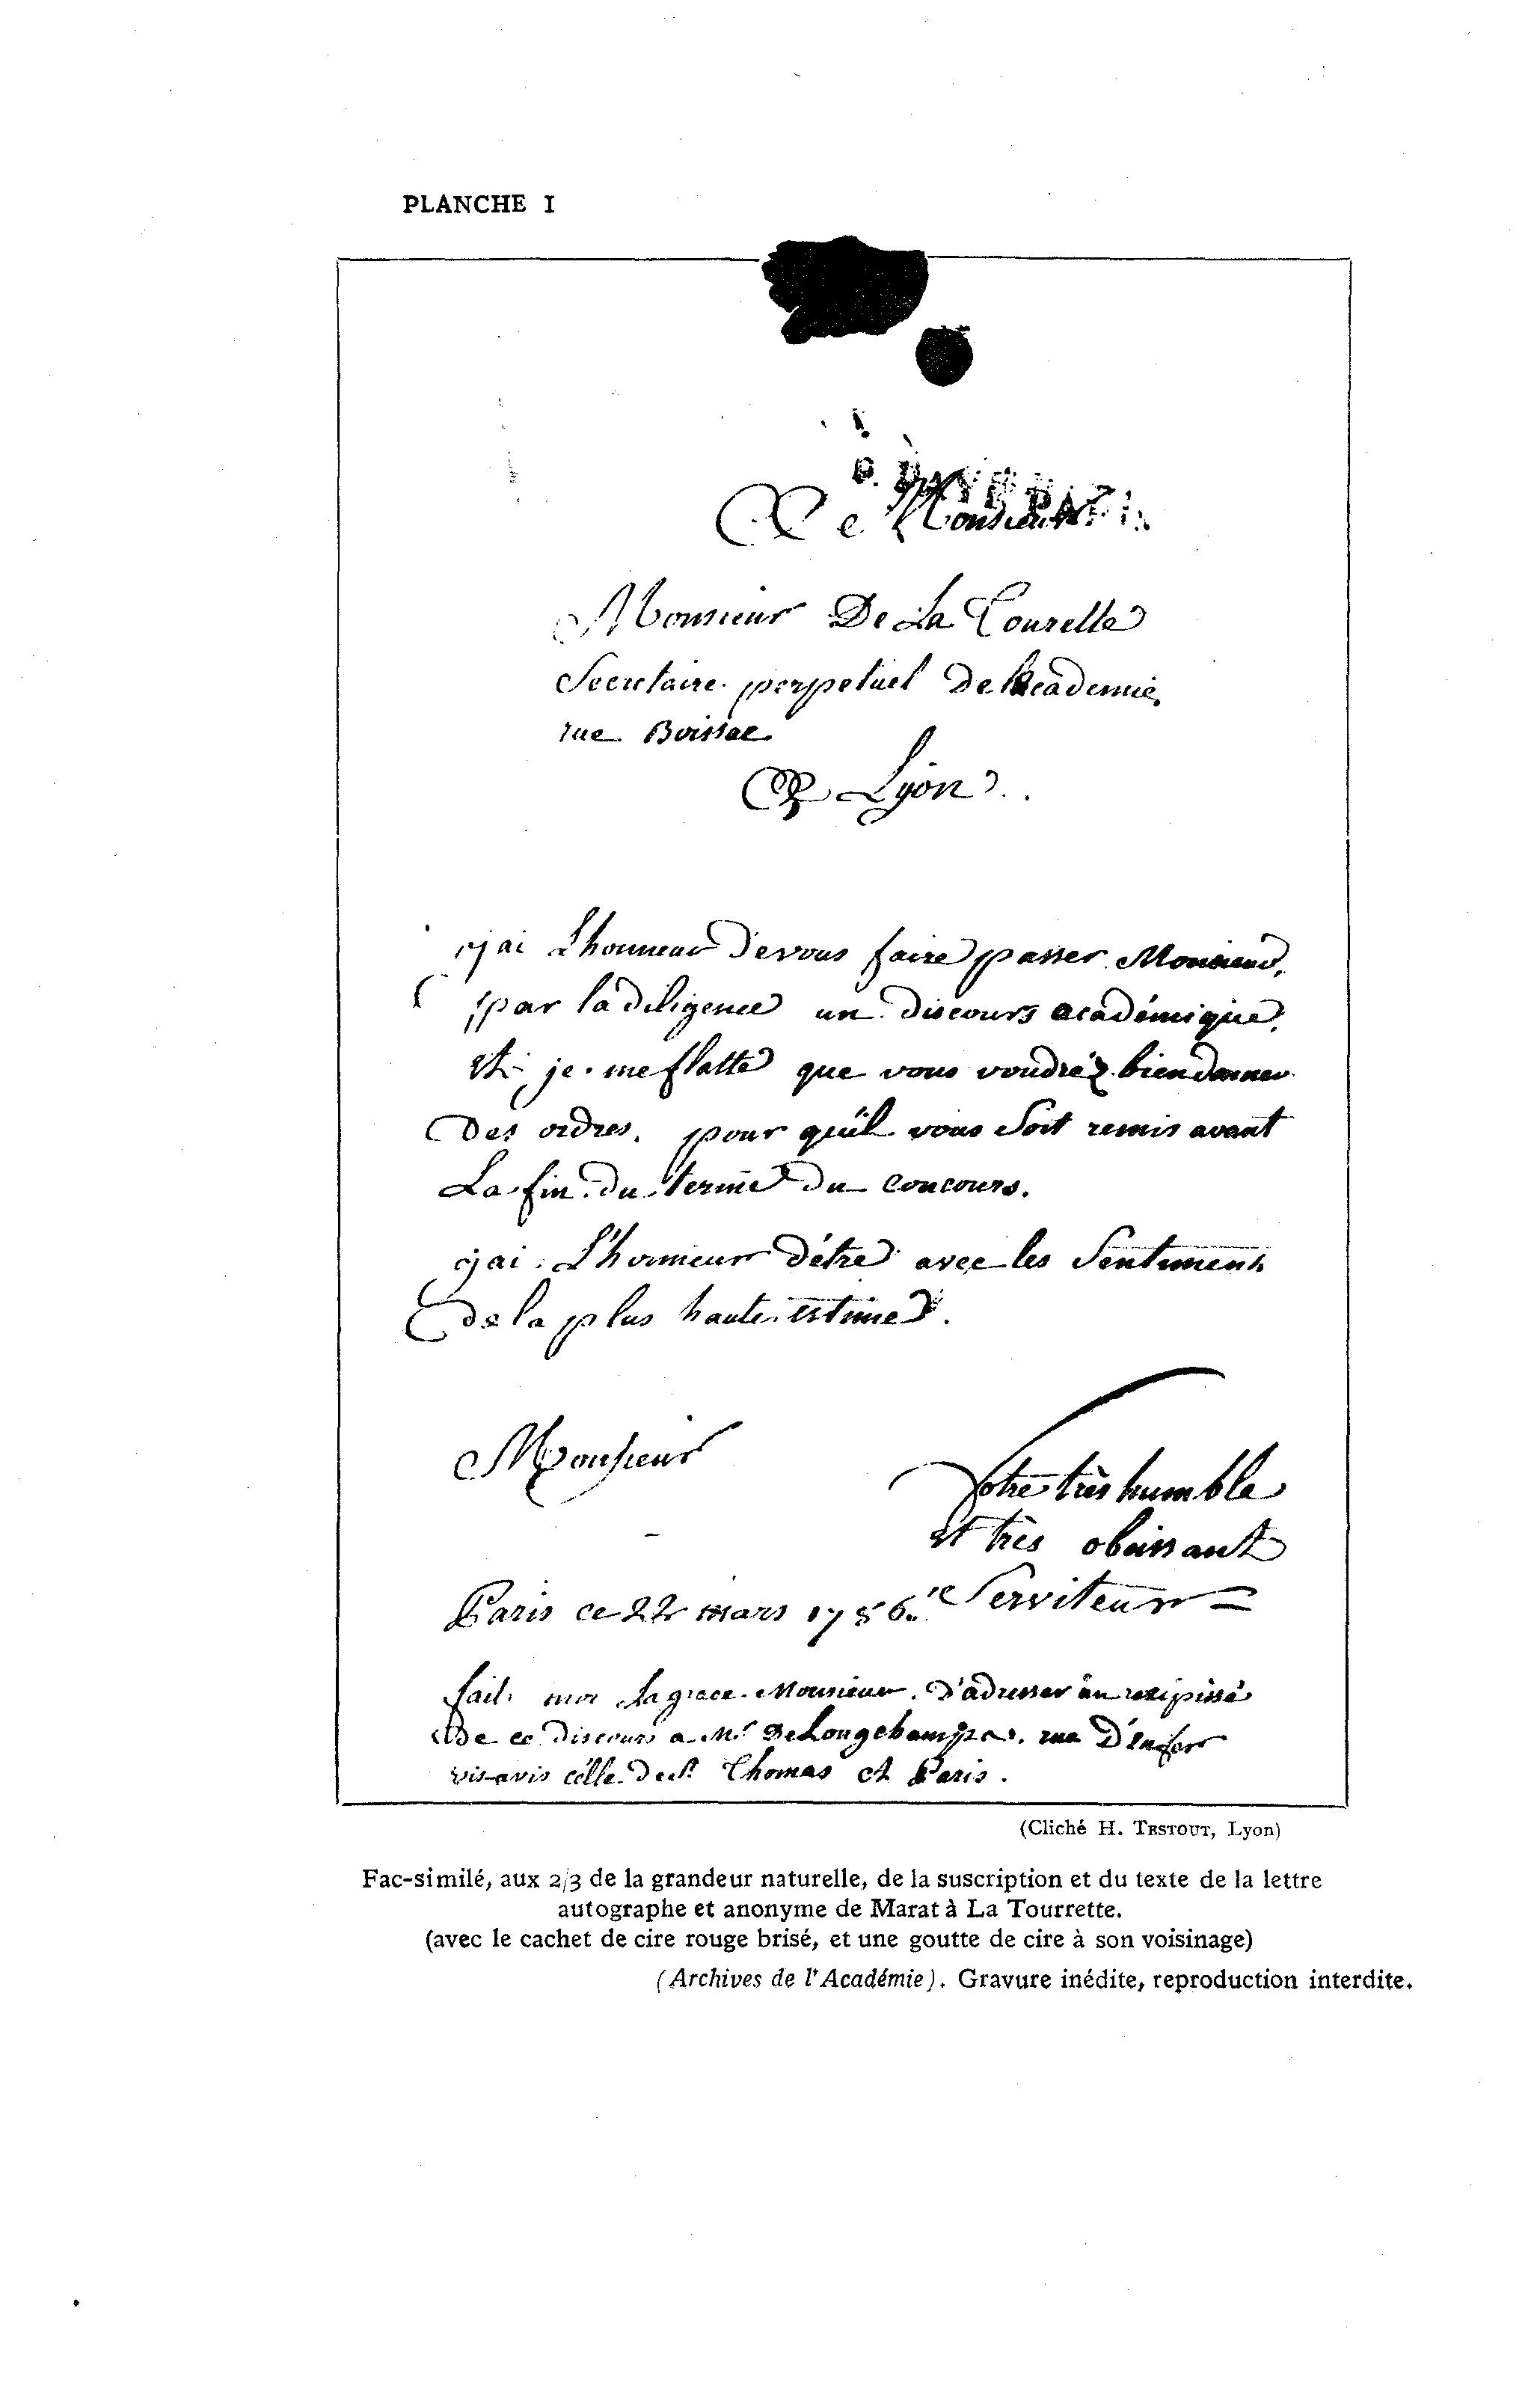 PLANCHE I
Monsieur
Monsieur De La Tourette
Secretaire perpetuel De l'Academie
rue Boissac
a Lyon
j'ai L'honneur De vous faire passer Monsieur,
par la diligence un Discours académique,
Et je me flatte que vous voudréz bien donner
Des ordres, pour qu'il vous soit remis avant
La fin du terme du concours.
j'ai L'honneur d'étre avec les Sentimens
De la plus haute estime.
Monsieur
Votre très humble
et très obeissant
Serviteur
Paris ce 22 mars 1786.
fait moi la grace Monsieur d'adresser un recipissé
de ce Discours a Mr De Longchamps, rue D'enfer
vis-avis célle De St Thomas a Paris.
(Cliché H. TESTOUT, Lyon)
Fac-similé, aux 2/3 de la grandeur naturelle, de la suscription et du texte de la lettre
autographe et anonyme de Marat à La Tourrette.
(avec le cachet de cire rouge brisé, et une goutte de cire à son voisinage)
(Archives de l'Académie). Gravure inédite, reproduction interdite.